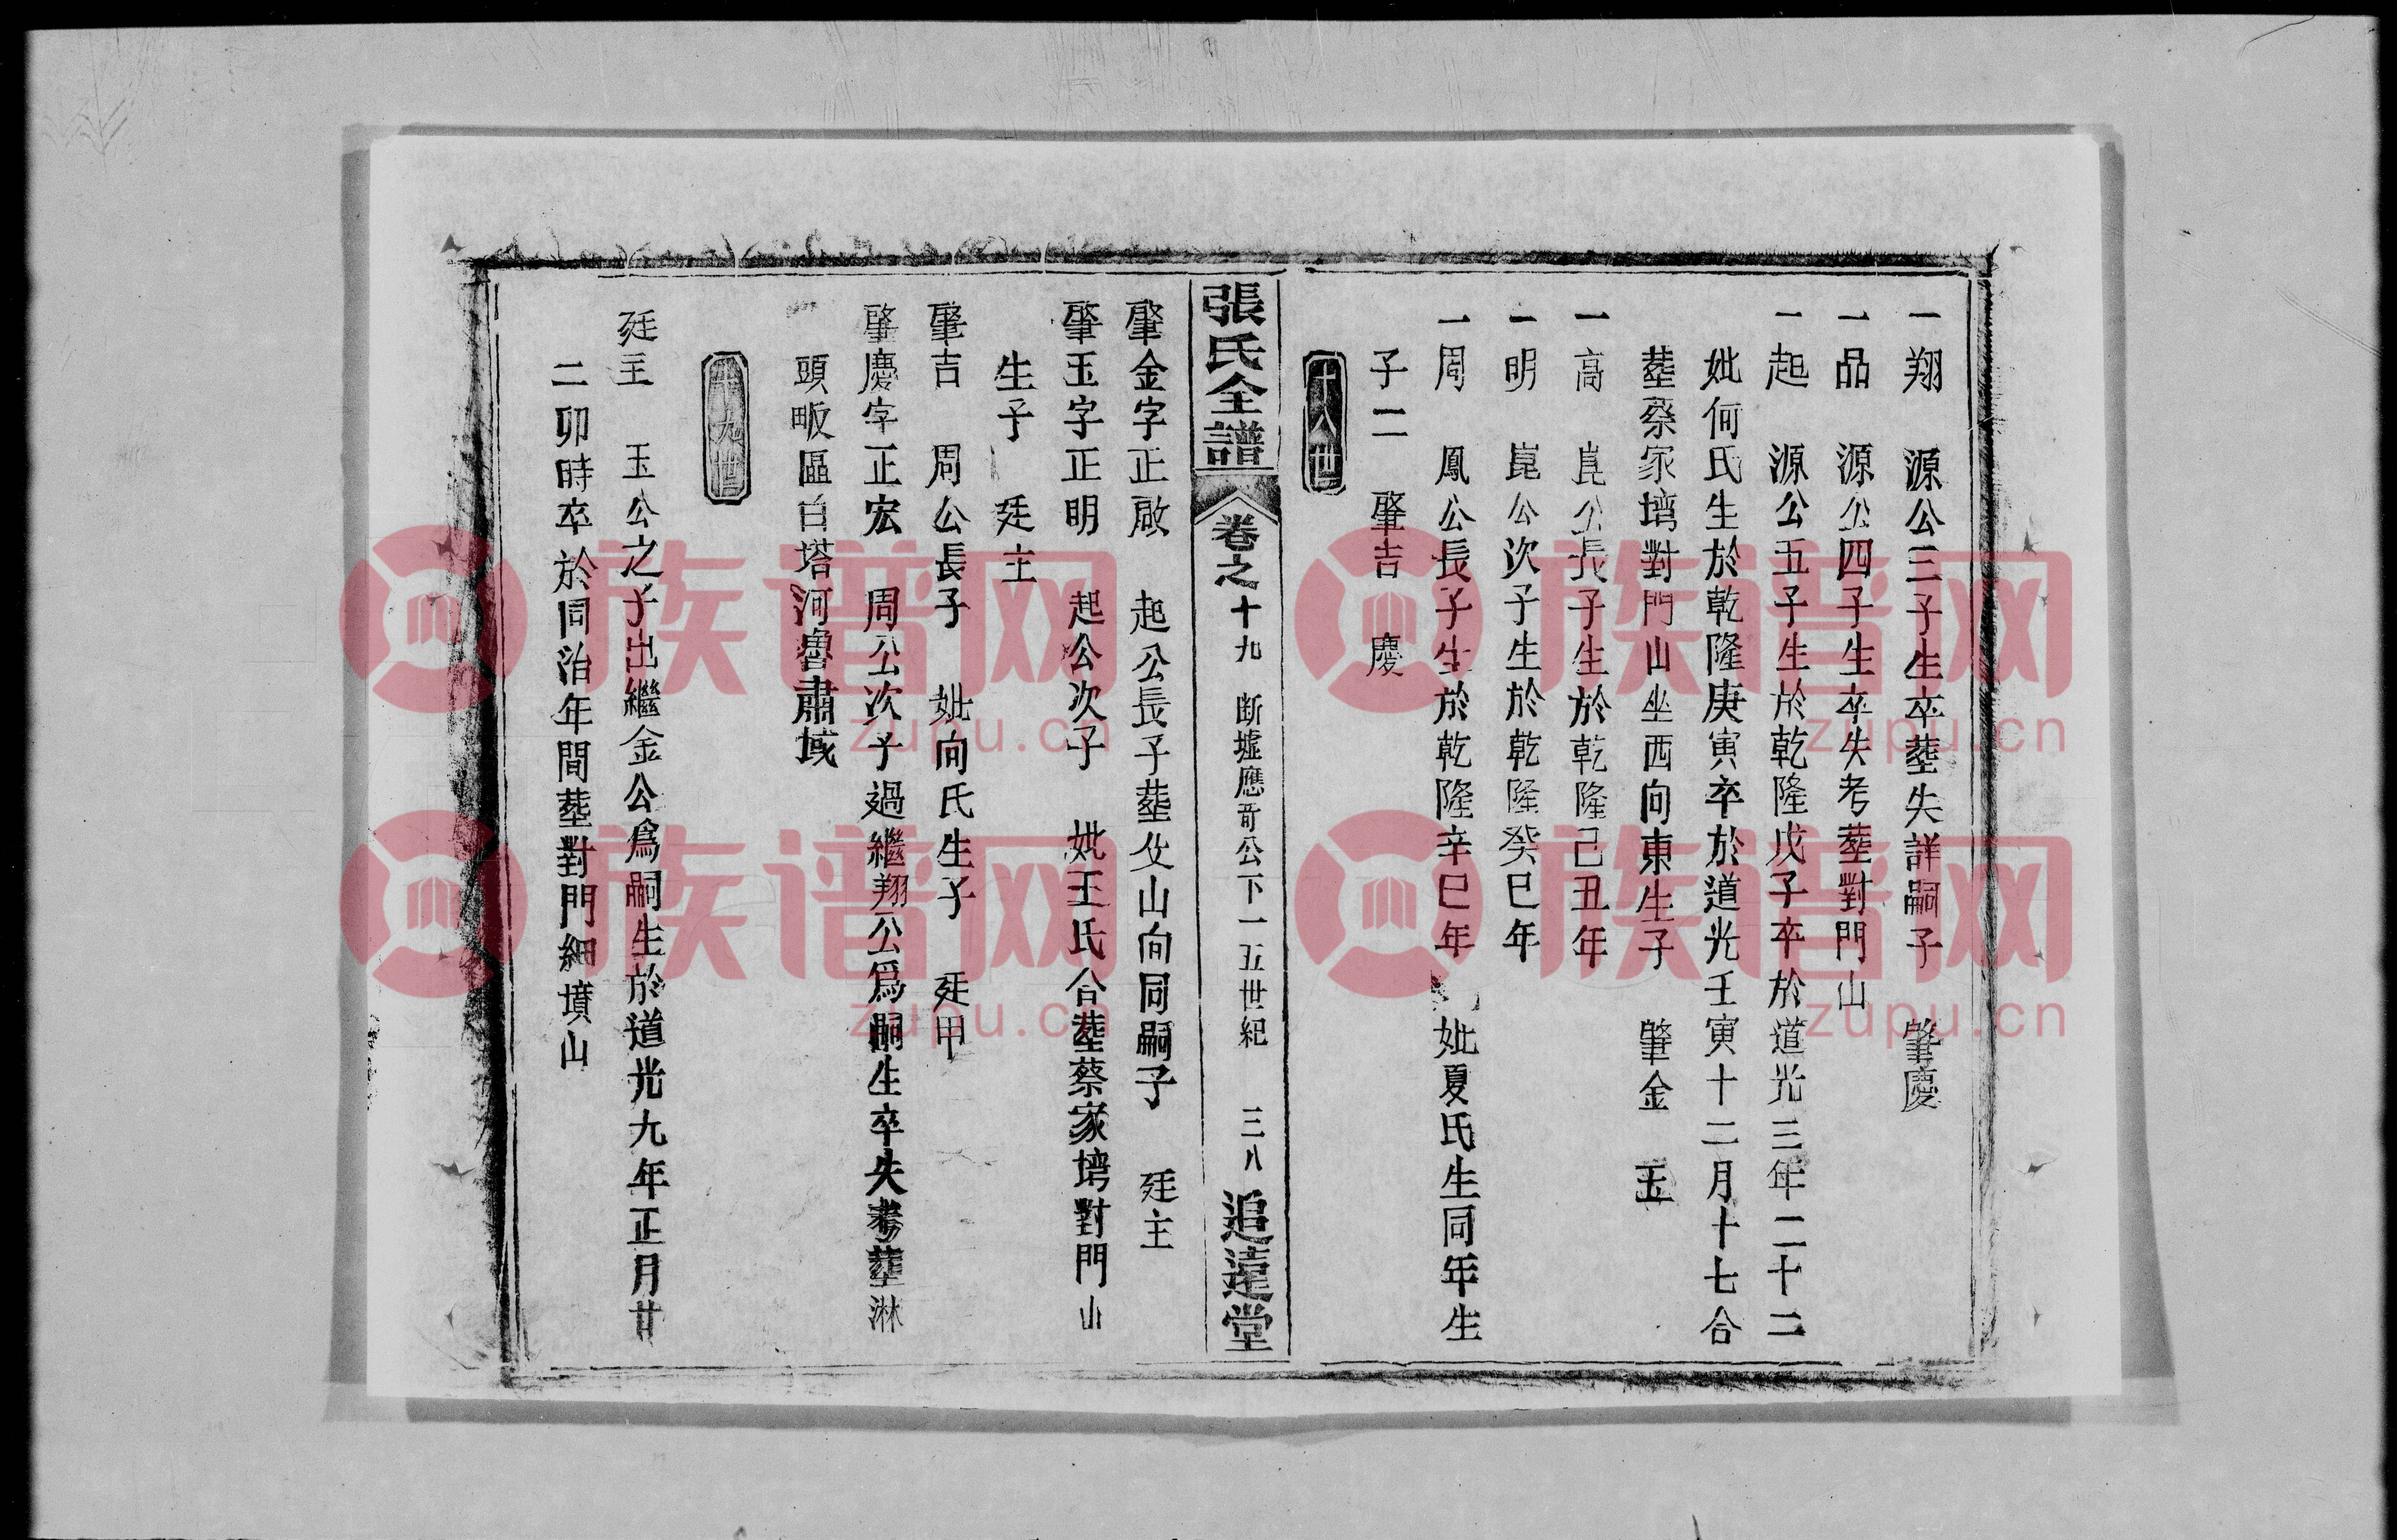 一翔 源公三子生卒塟失詳嗣子 肇慶
一品 源公四子生卒失考塟對門山
一起 源公五子生於乾隆戊子卒於道光三年二十二
妣何氏生於乾隆庚寅卒於道光壬寅十二月十七合
塟蔡家塆對門山坐西向東生子 肇金 玉
一高 崑公長子生於乾隆己丑年
一明 崑公次子生於乾隆癸巳年
一周 鳳公長子生於乾隆辛巳年 妣夏氏生同年生
子二 肇吉 慶
十八世
張氏全譜 卷之十九 斷墟應哥公下一五世紀 三八 追遠堂
肇金字正啟 起公長子塟父山向同嗣子 廷主
肇玉字正明 起公次子 妣王氏合塟蔡家塆對門山
生子 廷主
肇吉 周公長子 妣向氏生子 廷甲
肇慶字正宏 周公次子過繼翔公爲嗣生卒失考塟淋
頭畈區白塔河魯肅域
十九世
廷主 玉公之子出繼金公爲嗣生於道光九年正月廿
二卯時卒於同治年間塟對門細墳山
族谱网
zupu.cn
族谱网
zupu.cn
族谱网
zupu.cn
族谱网
zupu.cn